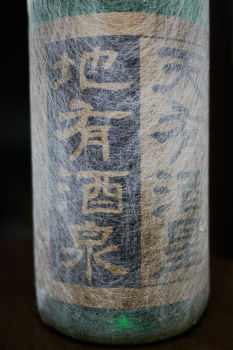 天有酒星
地有酒泉